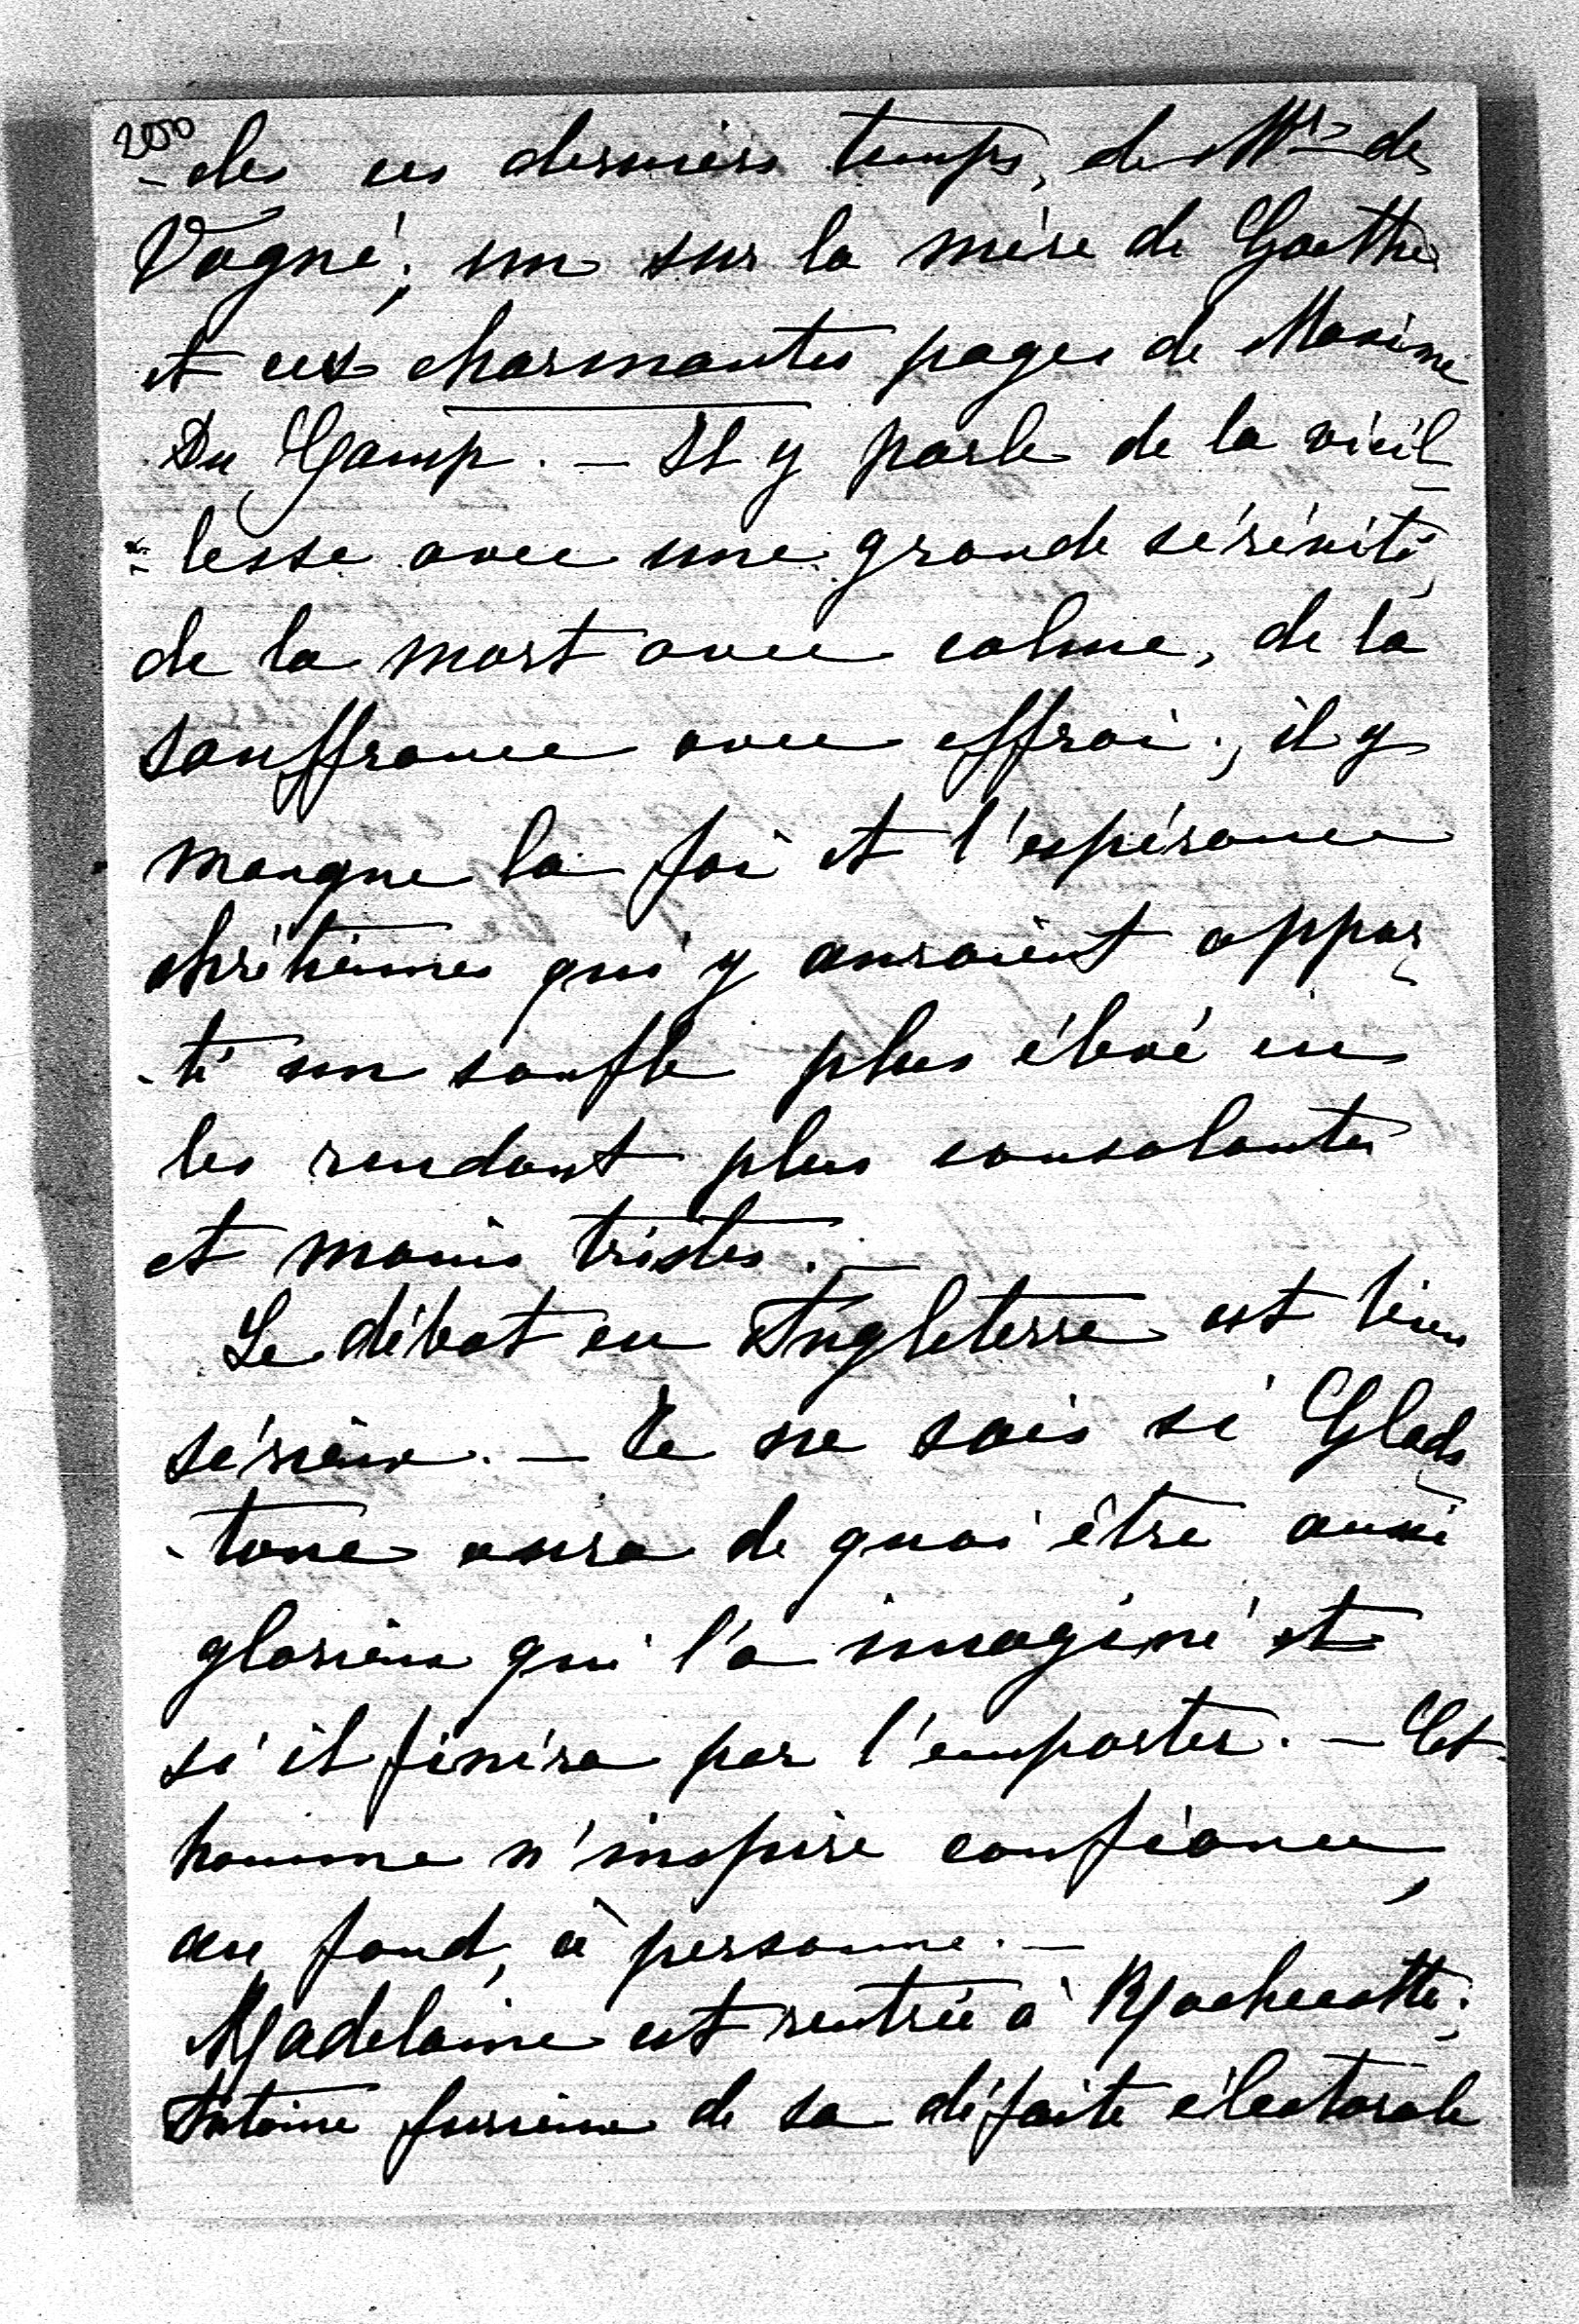 200
-cles ces derniers temps, de Mr de
Vogué; un sur la mère de Goethe
et ces charmantes pages de Maxime
Du Camp. — Il y parle de la vieil-
-lesse avec une grande sérénité,
de la mort avec calme, de la
souffrance avec effroi; il y
manque la foi et l'espérance
chrétiennes qui y auraient appor-
-té un soufle plus élevé en
les rendant plus consolantes
et moins tristes. —
Le débat en Angleterre est bien
sérieux. — Je ne sais si Glads-
-tone aura de quoi être aussi
glorieux qu'il l'a imaginé et
si il finira par l'emporter. — Cet
homme n'inspire confiance,
au fond, à personne. —
Madelaine est rentrée à Rochecotte;
Antoine furieux de sa défaite électorale